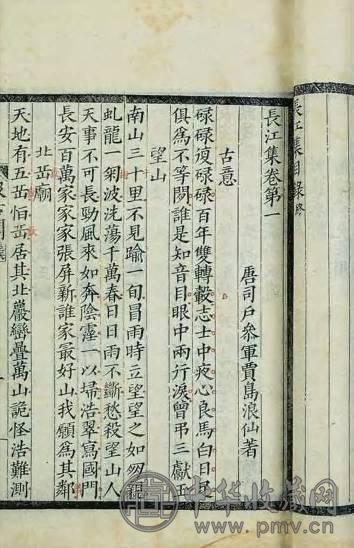 長江集目錄終
長江集卷第一
唐司戶參軍賈島浪仙著
古意
碌碌復碌碌百年雙轉轂志士中夜心良馬白日足
俱為不等閑誰是知音目眼中兩行淚曾弔三獻玉
望山
南山三十里不見踰一旬冒雨時立望望之如朋親
虬龍一掬波洗蕩千萬春日日雨不斷愁殺望山人
天事不可長勁風來如奔陰霾一以掃浩翠寫國門
長安百萬家家家張屏新誰家最好山我願為其鄰
北岳廟
天地有五岳恒岳居其北巖巒疊萬山詭怪浩難測
中华收藏网
www.pmv.cn